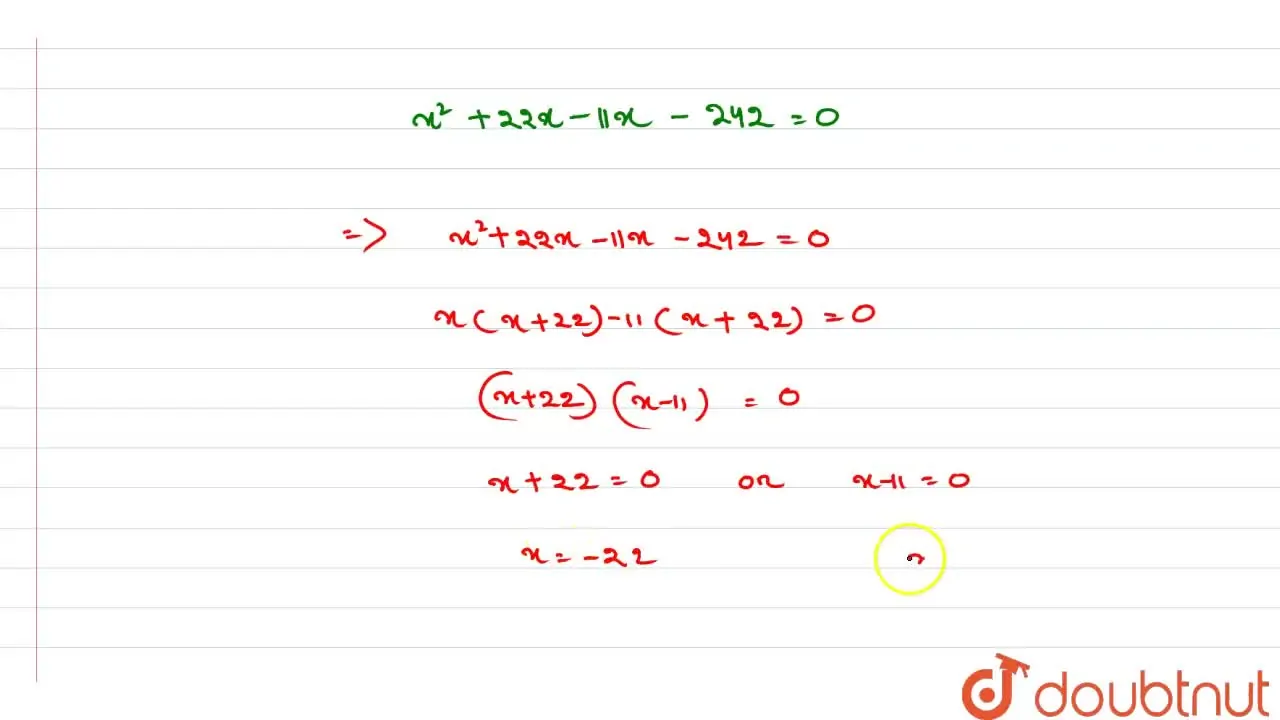 x² + 22x - 11x - 242 = 0
=> x² + 22x - 11x - 242 = 0
x(x+22) - 11(x+22) = 0
(x+22)(x-11) = 0
x + 22 = 0 or x-11 = 0
x = -22
doubtnut